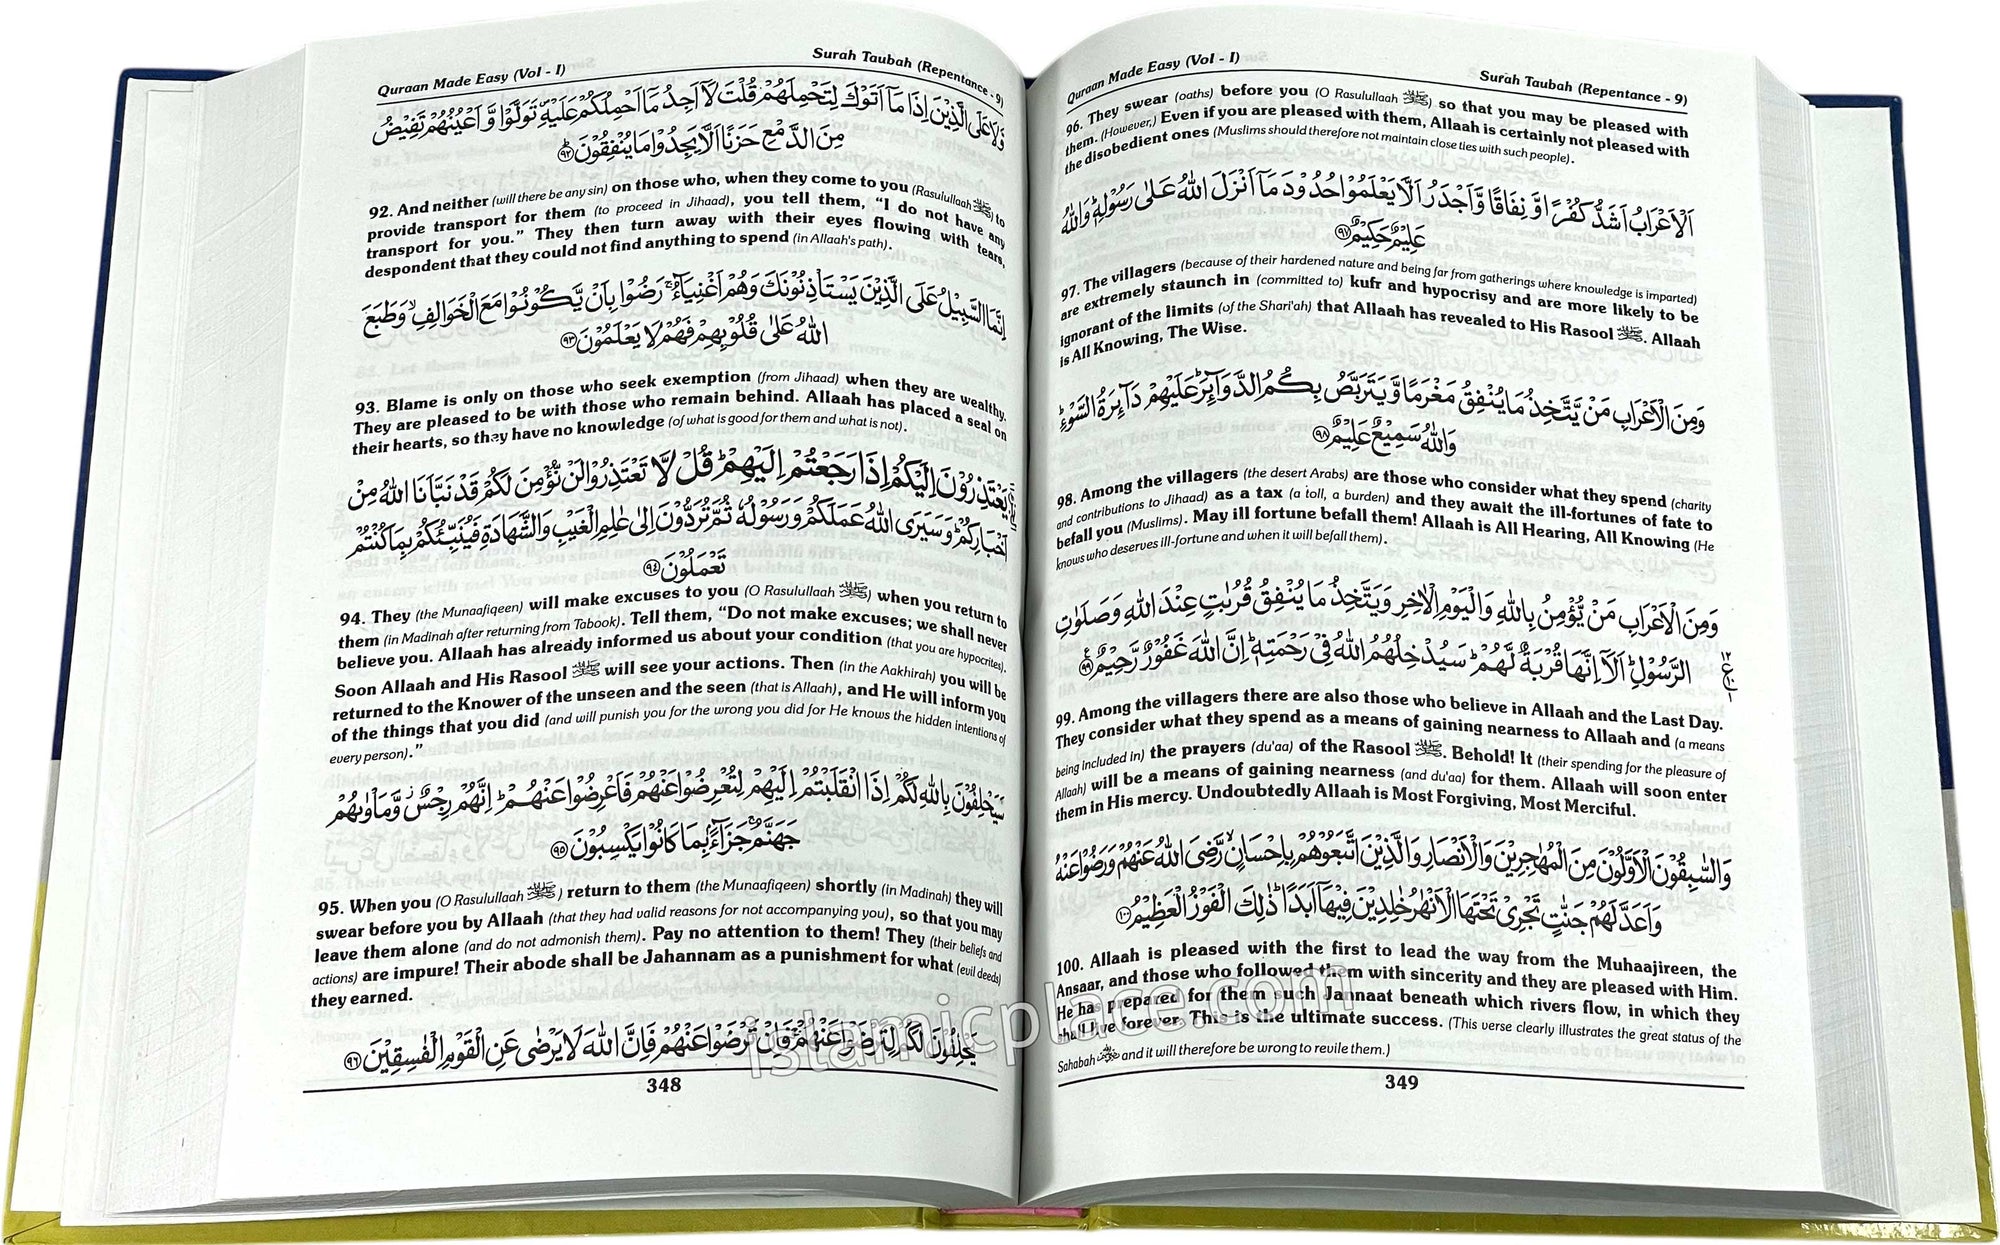 Quraan Made Easy (Vol - I) Surah Taubah (Repentance - 9)
وَّلَا عَلَى الَّذِيْنَ اِذَا مَاۤ اَتَوْكَ لِتَحْمِلَهُمْ قُلْتَ لَاۤ اَجِدُ مَاۤ اَحْمِلُكُمْ عَلَيْهِ تَوَلَّوْا وَّاَعْيُنُهُمْ تَفِيْضُ
مِنَ الدَّمْعِ حَزَنًا اَلَّا يَجِدُوْا مَا يُنْفِقُوْنَ ﴿٩٢﴾
92. And neither (will there be any sin) on those who, when they come to you (Rasulullaah ﷺ) to
provide transport for them (to proceed in Jihaad), you tell them, “I do not have any
transport for you.” They then turn away with their eyes flowing with tears,
despondent that they could not find anything to spend (in Allaah's path).
اِنَّمَا السَّبِيْلُ عَلَى الَّذِيْنَ يَسْتَاْذِنُوْنَكَ وَهُمْ اَغْنِيَآءُ رَضُوْا بِاَنْ يَّكُوْنُوْا مَعَ الْخَوَالِفِ وَطَبَعَ
اللّٰهُ عَلٰى قُلُوْبِهِمْ فَهُمْ لَا يَعْلَمُوْنَ ﴿٩٣﴾
93. Blame is only on those who seek exemption (from Jihaad) when they are wealthy.
They are pleased to be with those who remain behind. Allaah has placed a seal on
their hearts, so they have no knowledge (of what is good for them and what is not).
يَعْتَذِرُوْنَ اِلَيْكُمْ اِذَا رَجَعْتُمْ اِلَيْهِمْ قُلْ لَّا تَعْتَذِرُوْا لَنْ نُّؤْمِنَ لَكُمْ قَدْ نَبَّاَنَا اللّٰهُ مِنْ
اَخْبَارِكُمْ وَسَيَرَى اللّٰهُ عَمَلَكُمْ وَرَسُوْلُهٗ ثُمَّ تُرَدُّوْنَ اِلٰى عٰلِمِ الْغَيْبِ وَالشَّهَادَةِ فَيُنَبِّئُكُمْ بِمَا كُنْتُمْ
تَعْمَلُوْنَ ﴿٩٤﴾
94. They (the Munaafiqeen) will make excuses to you (O Rasulullaah ﷺ) when you return to
them (in Madinah after returning from Tabook). Tell them, “Do not make excuses; we shall never
believe you. Allaah has already informed us about your condition (that you are hypocrites).
Soon Allaah and His Rasool ﷺ will see your actions. Then (in the Aakhirah) you will be
returned to the Knower of the unseen and the seen (that is Allaah), and He will inform you
of the things that you did (and will punish you for the wrong you did for He knows the hidden intentions of
every person).”
سَيَحْلِفُوْنَ بِاللّٰهِ لَكُمْ اِذَا انْقَلَبْتُمْ اِلَيْهِمْ لِتُعْرِضُوْا عَنْهُمْ فَاَعْرِضُوْا عَنْهُمْ اِنَّهُمْ رِجْسٌ وَّمَاْوٰىهُمْ
جَهَنَّمُ جَزَآءً بِمَا كَانُوْا يَكْسِبُوْنَ ﴿٩٥﴾
95. When you (O Rasulullaah ﷺ) return to them (the Munaafiqeen) shortly (in Madinah) they will
swear before you by Allaah (that they had valid reasons for not accompanying you), so that you may
leave them alone (and do not admonish them). Pay no attention to them! They (their beliefs and
actions) are impure! Their abode shall be Jahannam as a punishment for what (evil deeds)
they earned.
يَحْلِفُوْنَ لَكُمْ لِتَرْضَوْا عَنْهُمْ فَاِنْ تَرْضَوْا عَنْهُمْ فَاِنَّ اللّٰهَ لَا يَرْضٰى عَنِ الْقَوْمِ الْفٰسِقِيْنَ ﴿٩٦﴾
348
Quraan Made Easy (Vol - I) Surah Taubah (Repentance - 9)
96. They swear (oaths) before you (O Rasulullaah ﷺ) so that you may be pleased with
them. (However,) Even if you are pleased with them, Allaah is certainly not pleased with
the disobedient ones (Muslims should therefore not maintain close ties with such people).
اَلْاَعْرَابُ اَشَدُّ كُفْرًا وَّنِفَاقًا وَّاَجْدَرُ اَلَّا يَعْلَمُوْا حُدُوْدَ مَاۤ اَنْزَلَ اللّٰهُ عَلٰى رَسُوْلِهٖ وَاللّٰهُ
عَلِيْمٌ حَكِيْمٌ ﴿٩٧﴾
97. The villagers (because of their hardened nature and being far from gatherings where knowledge is imparted)
are extremely staunch in (committed to) kufr and hypocrisy and are more likely to be
ignorant of the limits (of the Shari'ah) that Allaah has revealed to His Rasool ﷺ. Allaah
is All Knowing, The Wise.
وَمِنَ الْاَعْرَابِ مَنْ يَّتَّخِذُ مَا يُنْفِقُ مَغْرَمًا وَّيَتَرَبَّصُ بِكُمُ الدَّوَآئِرَ عَلَيْهِمْ دَآئِرَةُ السَّوْءِ
وَاللّٰهُ سَمِيْعٌ عَلِيْمٌ ﴿٩٨﴾
98. Among the villagers (the desert Arabs) are those who consider what they spend (charity
and contributions to Jihaad) as a tax (a toll, a burden) and they await the ill-fortunes of fate to
befall you (Muslims). May ill fortune befall them! Allaah is All Hearing, All Knowing (He
knows who deserves ill-fortune and when it will befall them).
وَمِنَ الْاَعْرَابِ مَنْ يُّؤْمِنُ بِاللّٰهِ وَالْيَوْمِ الْاٰخِرِ وَيَتَّخِذُ مَا يُنْفِقُ قُرُبٰتٍ عِنْدَ اللّٰهِ وَصَلَوٰتِ
الرَّسُوْلِ اَلَاۤ اِنَّهَا قُرْبَةٌ لَّهُمْ سَيُدْخِلُهُمُ اللّٰهُ فِيْ رَحْمَتِهٖ اِنَّ اللّٰهَ غَفُوْرٌ رَّحِيْمٌ ﴿٩٩﴾
99. Among the villagers there are also those who believe in Allaah and the Last Day.
They consider what they spend as a means of gaining nearness to Allaah and (a means
being included in) the prayers (du'aa) of the Rasool ﷺ. Behold! It (their spending for the pleasure of
Allaah) will be a means of gaining nearness (and du'aa) for them. Allaah will soon enter
them in His mercy. Undoubtedly Allaah is Most Forgiving, Most Merciful.
وَالسّٰبِقُوْنَ الْاَوَّلُوْنَ مِنَ الْمُهٰجِرِيْنَ وَالْاَنْصَارِ وَالَّذِيْنَ اتَّبَعُوْهُمْ بِاِحْسَانٍ رَّضِيَ اللّٰهُ عَنْهُمْ وَرَضُوْا عَنْهُ
وَاَعَدَّ لَهُمْ جَنّٰتٍ تَجْرِيْ تَحْتَهَا الْاَنْهٰرُ خٰلِدِيْنَ فِيْهَاۤ اَبَدًا ذٰلِكَ الْفَوْزُ الْعَظِيْمُ ﴿١٠٠﴾
100. Allaah is pleased with the first to lead the way from the Muhaajireen, the
Ansaar, and those who followed them with sincerity and they are pleased with Him.
He has prepared for them such Jannaat beneath which rivers flow, in which they
shall live forever. This is the ultimate success. (This verse clearly illustrates the great status of the
Sahabah and it will therefore be wrong to revile them.)
349
islamicplace.com